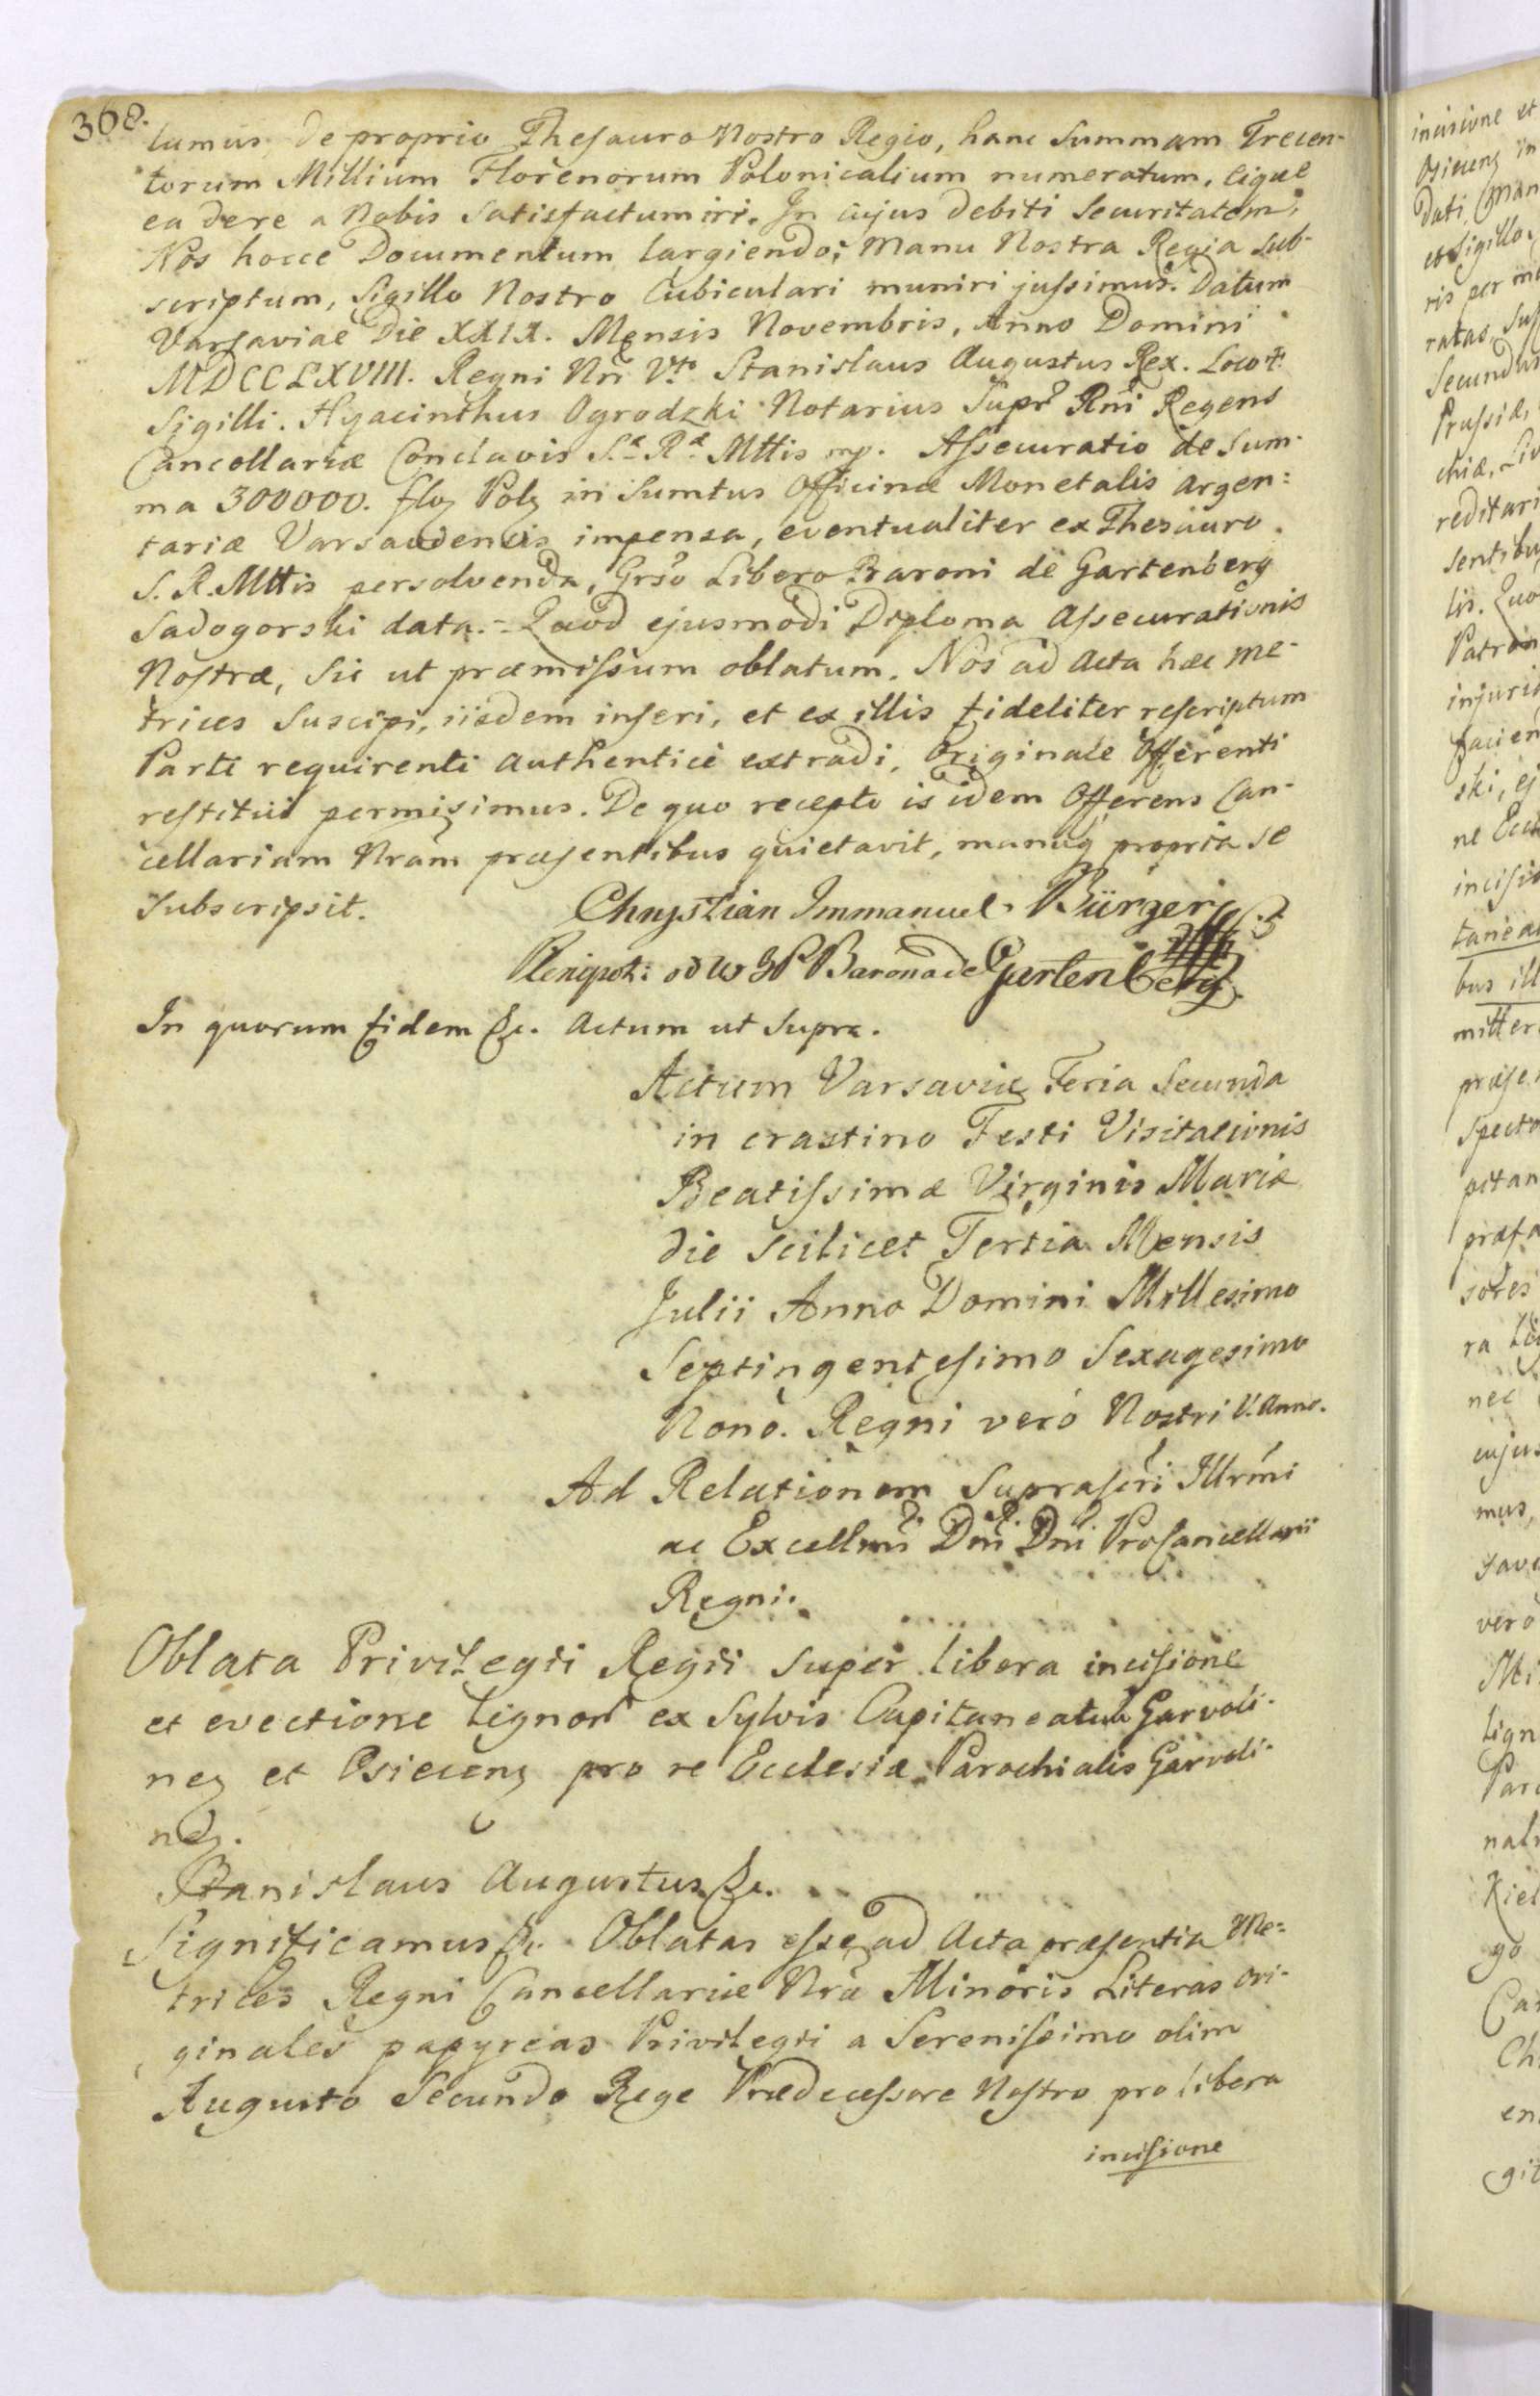 368.
lumus de proprio Thesauro Nostro Regio, hanc Summam Trecen-
torum Millium Florenorum Polonicalium numeratum, eique
ea dere a Nobis Satisfactum iri. In cujus debiti Securitatem,
Nos hocce Documentum largiendo; Manu Nostra Regia Sub-
scriptum, Sigillo Nostro Cubiculari muniri jussimus. Datum
Varsaviae Die XXIX. Mensis Novembris, Anno Domini
MDCCLXVIII. Regni Nri Vto Stanislaus Augustus Rex. Loco +
Sigilli. Hyacinthus Ogrodzki Notarius Supr Rni Regens
Cancollariæ Conclavis S.æ R.æ Mttis mp. Assecuratio de Sum-
ma 300000. flor Pol in Sumtus Officinæ Monetalis argen:
tariæ Varsaviensis impensa, eventualiter ex Thesauro
S. R. Mttis persolvenda, Grso Libero Baroni de Gartenberg
Sadogorski data.- Quod ejusmodi Diploma Assecurationis
Nostræ, Sic ut præmissum oblatum, Nos ad Acta hæc Me-
trices Suscipi, iisdem inseri, et ex illis fideliter rescriptum
Parti requirenti authentice extradi, Originale Offerenti
restitui permisimus. De quo recepto is idem Offerens Can-
cellariam Nram præsentibus quietavit, manuq propria se
Subscripsit.
Chrystian Immanuel Bürger
Plenipot: od W JP Barona de Gartenberg
In quorum fidem &c. Actum ut Supra.
Actum Varsaviæ Feria Secunda
in crastino Festi Visitationis
Beatissimæ Virginis Mariæ
die scilicet Tertia Mensis
Julii Anno Domini Millesimo
Septingentesimo Sexagesimo
Nono. Regni veró Nostri V. Anno.
Ad Relationem Suprascri Illrmi
ac Excellmi Dni Dni ProCancellarii
Regni.
Oblata Privilegii Regii Super libera incisione
et evectione Lignor ex Sylvis Capitaneatus Garvoli-
nen et Osiecen pro re Ecclesiæ Parochialis Garvoli-
nen.
Stanislaus Augustus &c.
Significamus &c. Oblatas esse ad Acta præsentia Me-
trices Regni Cancellariæ Nræ Minoris Literas ori-
ginales papyreas Privilegii a Serenissimo olim
Augusto Secundo Rege Prædecessore Nostro pro libera
incisione
incisione et
Osiecen in
dati, Man
et Sigillo
ris per
ratas, Sus
Secundus
Prussiæ,
chiæ, Liv
reditari
sentibu
lis. Quo
Patron
injuria
facien
ski, ej
ne Eccl
incisio
tanea
bus ill
mitter
præse
Specto
pitan
præfa
sores
ra
nec
cujus
mus,
save
vero
Mi
Lign
Paro
nali
Kiel
go
Ca
Ch
en
git